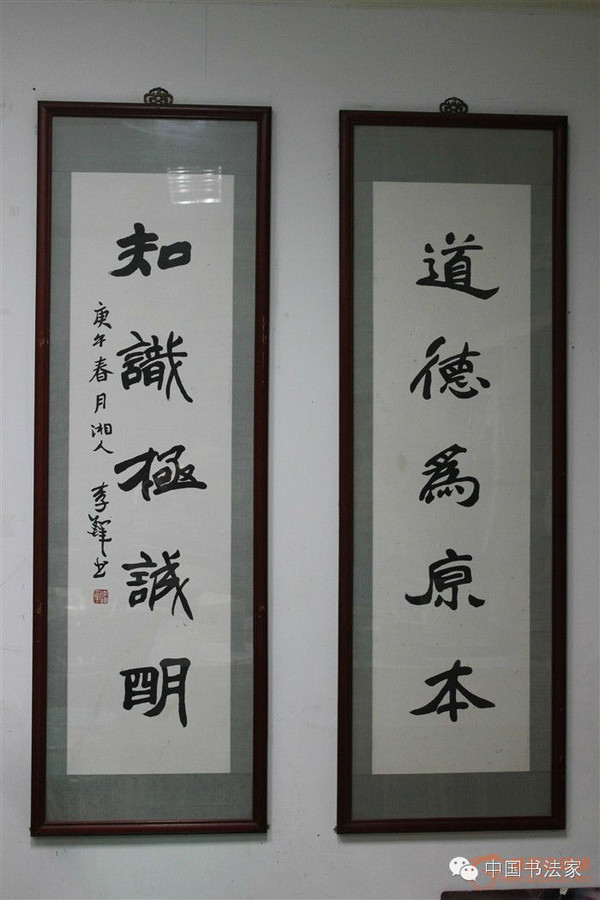 道德為原本
知識極誠明
庚午春月湘人 李鐸书
中国书法家